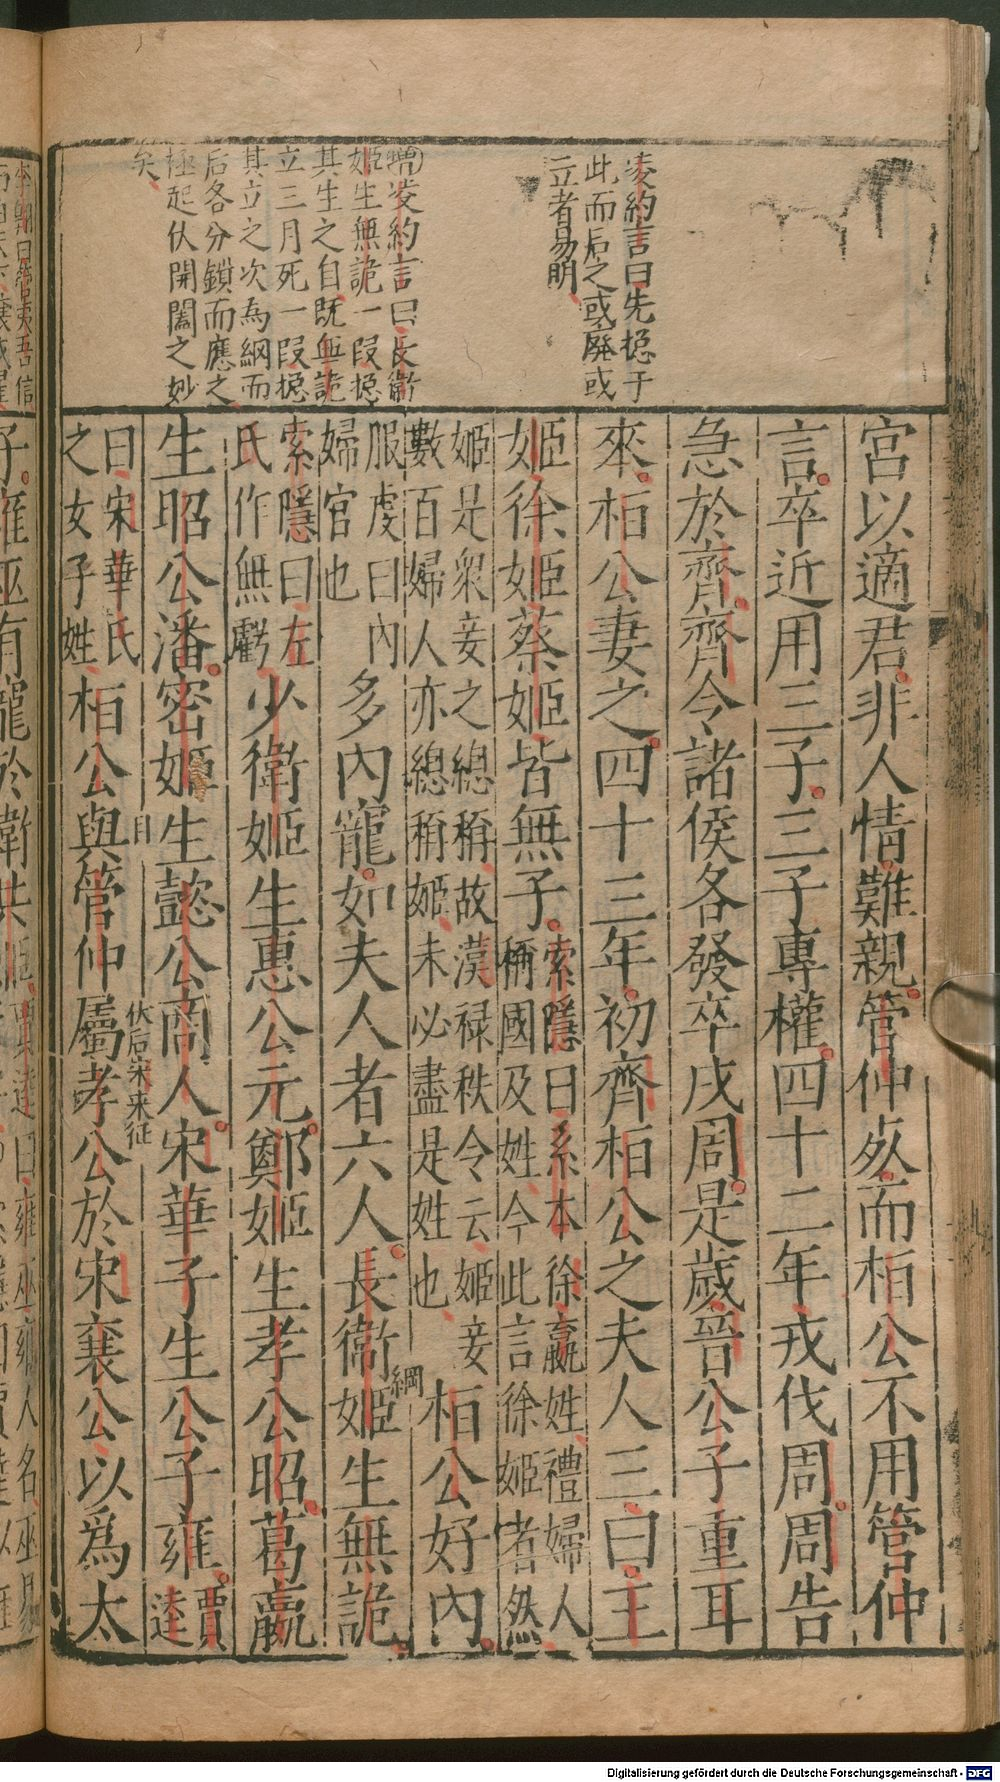 凌約言曰先揔于
此而后之或廢或
立者易明
增凌約言曰長衞
姬生無詭一段揔
其生之自既無詭
立三月死一段揔
其立之次為綱而
后各分鎖而應之
極起伏開闔之妙
矣
宮以適君非人情難親管仲死而桓公不用管仲
言卒近用三子三子專權四十二年戎伐周周告
急於齊齊令諸侯各發卒戍周是歲晉公子重耳
來桓公妻之四十三年初齊桓公之夫人三曰王
姬徐姬蔡姬皆無子索隱曰系本徐嬴姓禮婦人
稱國及姓今此言徐姬者然
姬是衆妾之總稱故漢禄秩令云姬妾
數百婦人亦總稱姬未必盡是姓也桓公好內
服虔曰內
婦官也多內寵如夫人者六人長衞姬生無詭
綱
索隱曰左
氏作無虧少衞姬生惠公元鄭姬生孝公昭葛嬴
生昭公潘密姬生懿公商人宋華子生公子雍賈
逵
目
伏后宋来征
曰宋華氏
之女子姓桓公與管仲屬孝公於宋襄公以爲太
子雍巫有寵於衞共
Digitalisierung gefördert durch die Deutsche Forschungsgemeinschaft - DFG